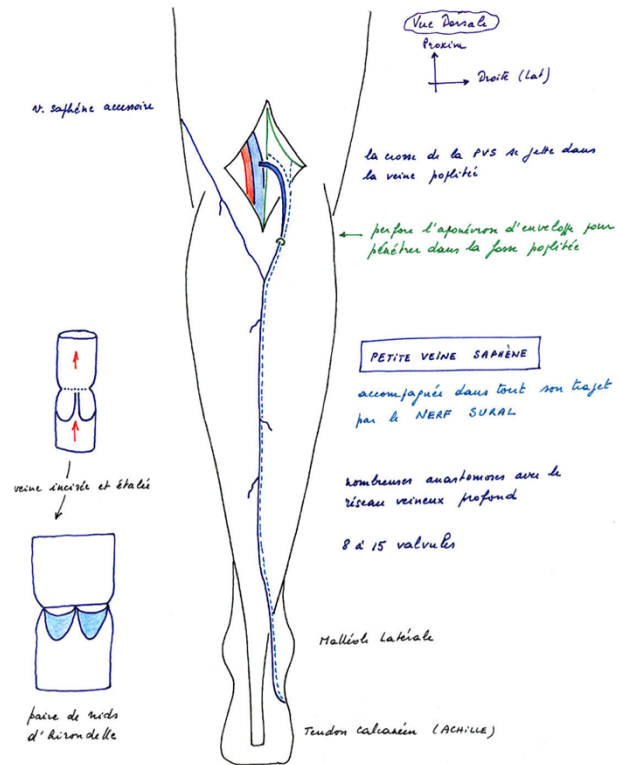 Vue Dorsale
Proxim
Droite (Lat)
v. saphène accessoire
la crosse de la PVS se jette dans
la veine poplitée
perfore l'aponévrose d'enveloppe pour
pénétrer dans la fosse poplitée
PETITE VEINE SAPHÈNE
accompagnée dans tout son trajet
par le NERF SURAL
veine incisée et étalée
nombreuses anastomoses avec le
réseau veineux profond
8 à 15 valvules
Malléole Latérale
paire de nids
d'hirondelle
Tendon calcanéen (ACHILLE)